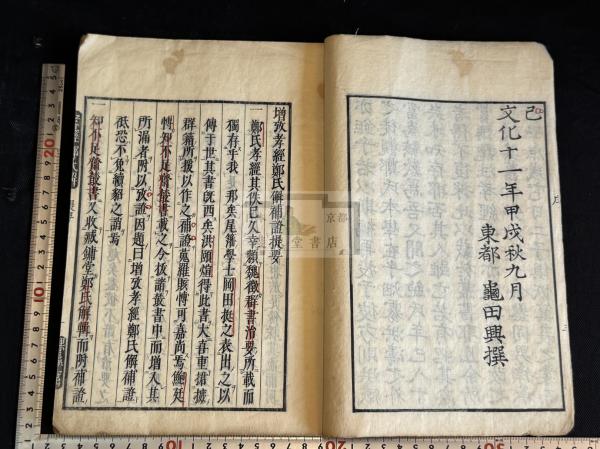 已
文化十一年甲戌秋九月
東都 龜田興撰
增攷孝經鄭氏解補證提要
一鄭氏孝經其佚已久幸賴魏徵群書治要所載而
獨存乎我
邦矣尾藩學士岡田挺之表出之以
傳于世其書既西矣洪頤煊得此書大喜重摭摭
群籍所援以作之補證蒐羅賅博可嘉尚焉鮑廷
博知不足齋叢書載之今拔諸叢書中而增入其
所漏者附以攷證因題曰增攷孝經鄭氏解補證
祇恐不免續貂之誚焉
一知不足齋叢書又收臧鏞堂鄭氏解輯而附補證